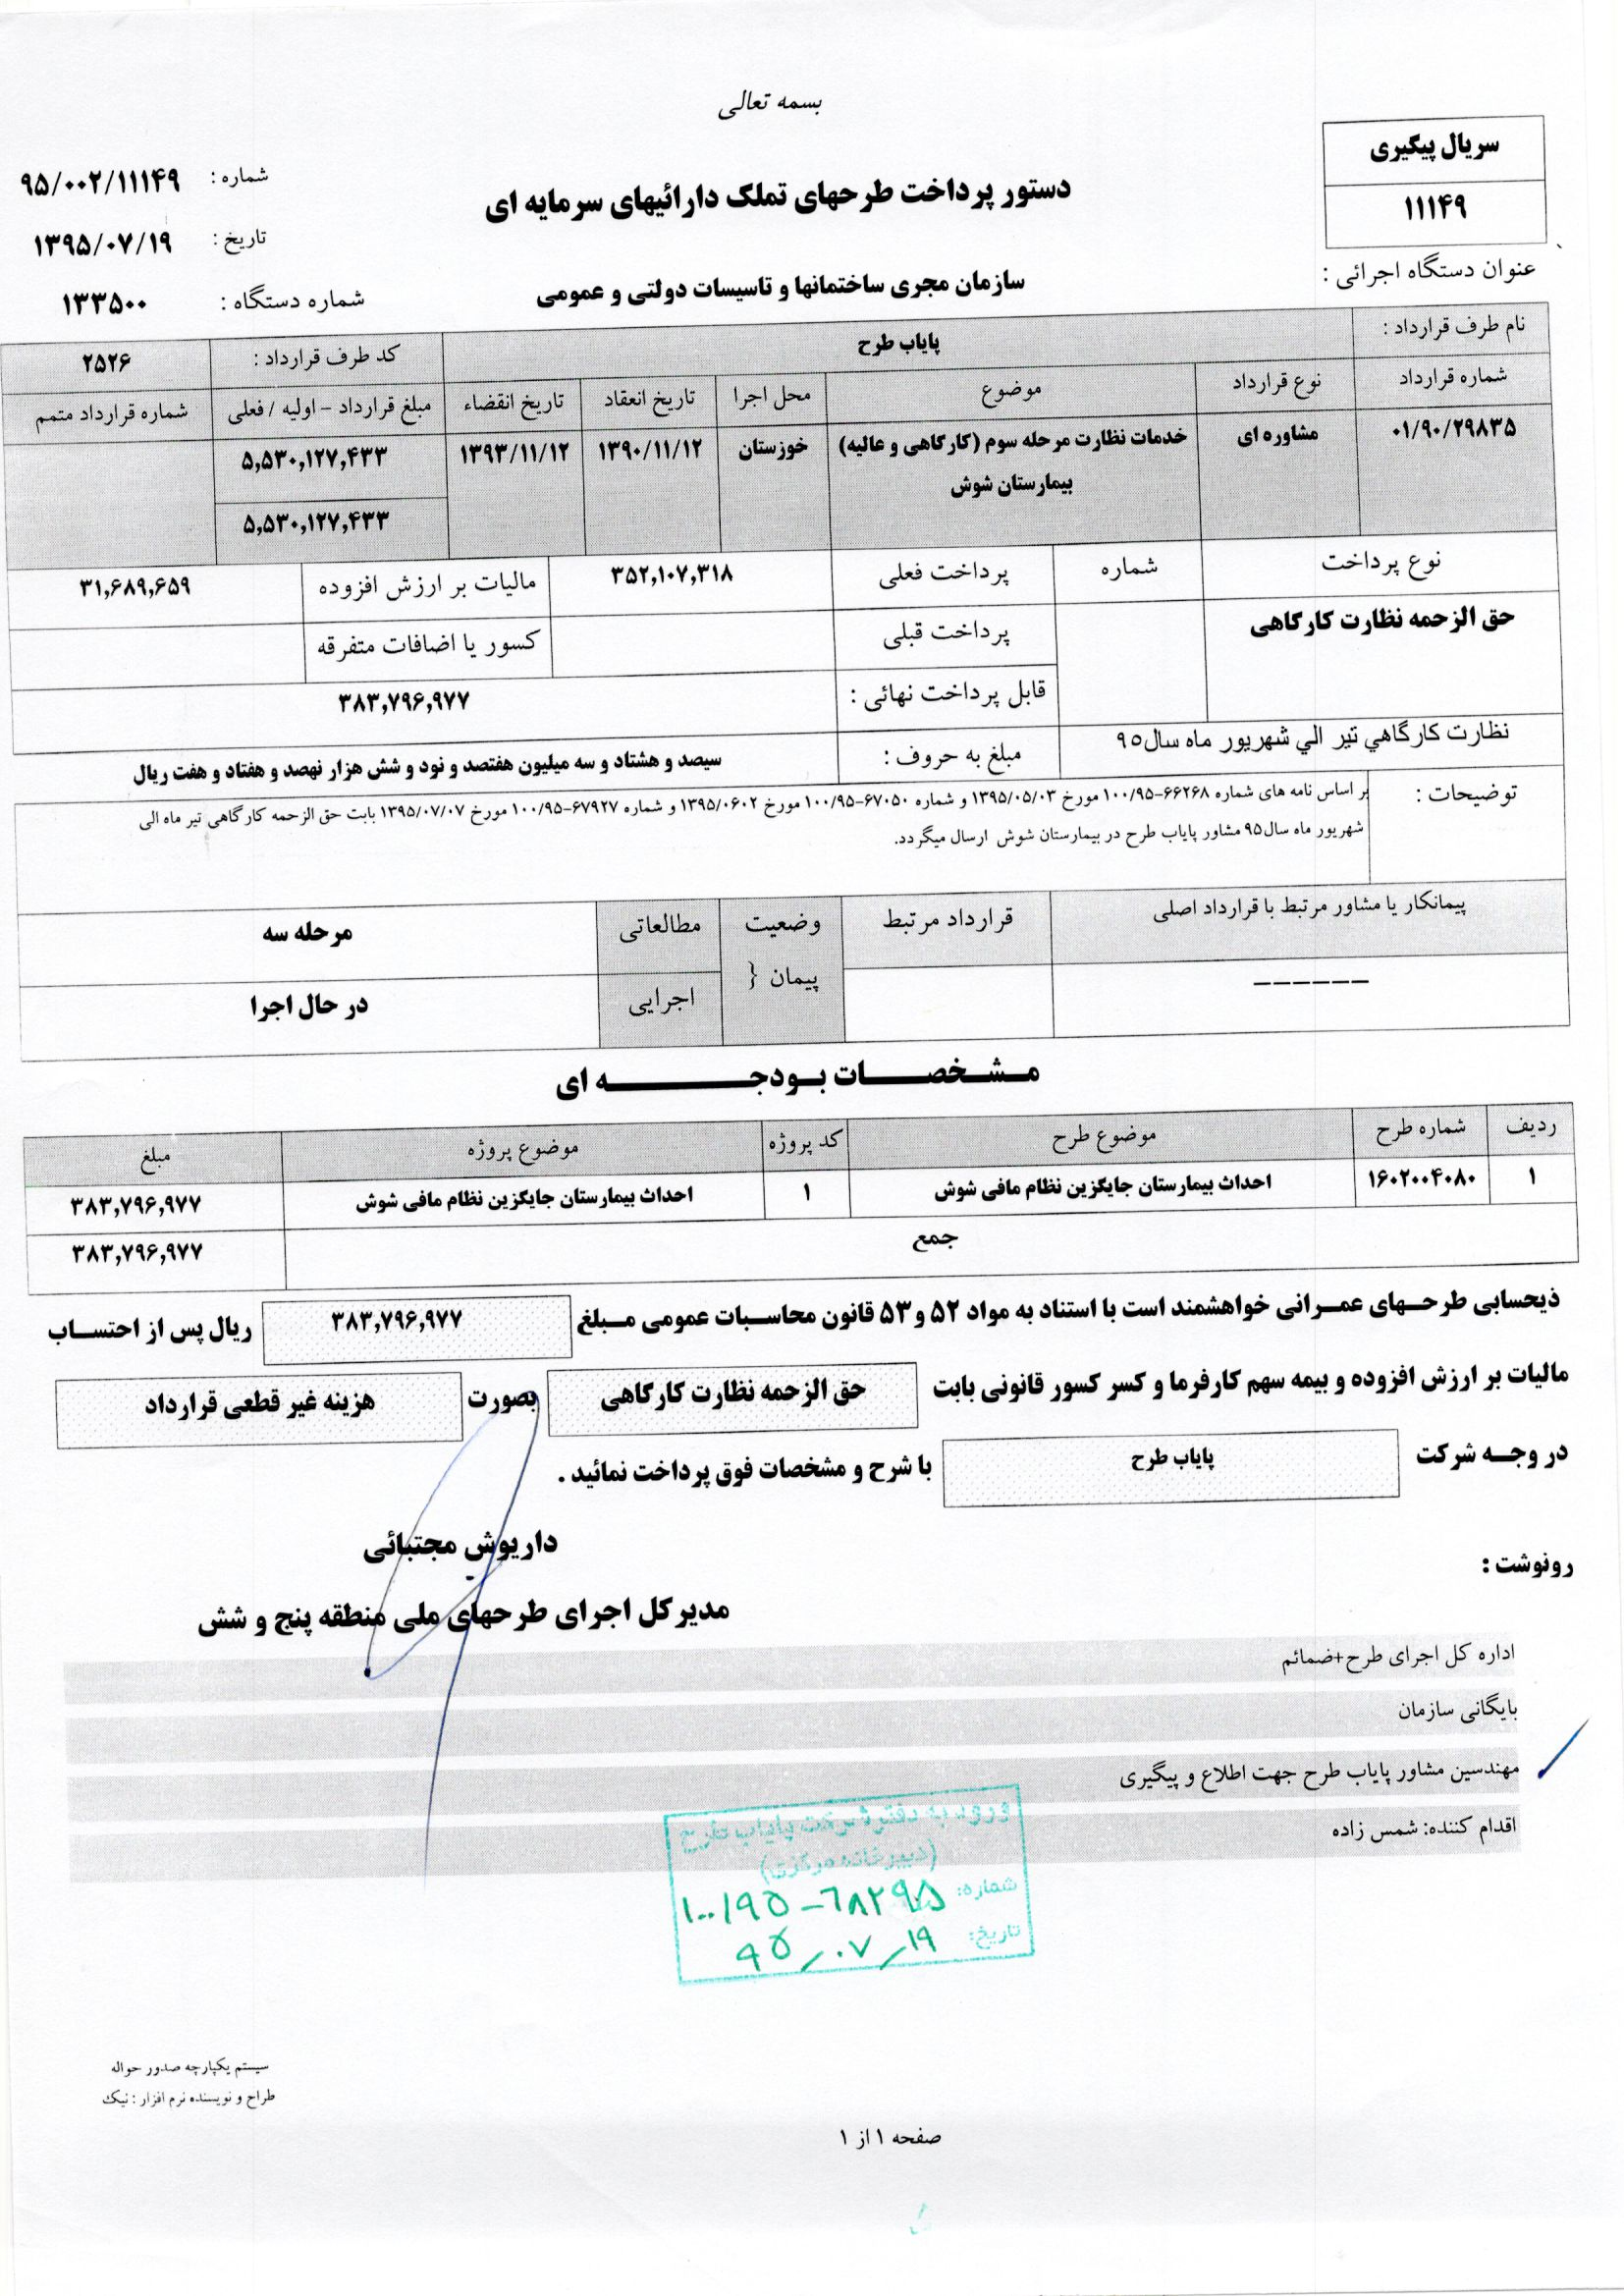 بسمه تعالی
سریال پیگیری
۱۱۱۴۹
دستور پرداخت طرحهای تملک دارائیهای سرمایه ای
شماره : ۹۵/۰۰۲/۱۱۱۴۹
تاریخ : ۱۳۹۵/۰۷/۱۹
عنوان دستگاه اجرائی : سازمان مجری ساختمانها و تاسیسات دولتی و عمومی
شماره دستگاه : ۱۳۳۵۰۰
نام طرف قرارداد : پایاب طرح کد طرف قرارداد : ۲۵۲۶
شماره قرارداد نوع قرارداد موضوع محل اجرا تاریخ انعقاد تاریخ انقضاء مبلغ قرارداد - اولیه / فعلی شماره قرارداد متمم
۰۱/۹۰/۲۹۸۳۵ مشاوره ای خدمات نظارت مرحله سوم (کارگاهی و عالیه) خوزستان ۱۳۹۰/۱۱/۱۲ ۱۳۹۳/۱۱/۱۲ ۵,۵۳۰,۱۲۷,۴۳۳
بیمارستان شوش ۵,۵۳۰,۱۲۷,۴۳۳
نوع پرداخت شماره پرداخت فعلی ۳۵۲,۱۰۷,۳۱۸ مالیات بر ارزش افزوده ۳۱,۶۸۹,۶۵۹
حق الزحمه نظارت کارگاهی پرداخت قبلی کسور یا اضافات متفرقه
قابل پرداخت نهائی : ۳۸۳,۷۹۶,۹۷۷
نظارت کارگاهي تیر الي شهریور ماه سال۹۵ مبلغ به حروف : سیصد و هشتاد و سه میلیون هفتصد و نود و شش هزار نهصد و هفتاد و هفت ریال
توضیحات : بر اساس نامه های شماره ۶۶۲۶۸-۱۰۰/۹۵ مورخ ۱۳۹۵/۰۵/۰۳ و شماره ۶۷۰۵۰-۱۰۰/۹۵ مورخ ۱۳۹۵/۰۶۰۲ و شماره ۶۷۹۲۷-۱۰۰/۹۵ مورخ ۱۳۹۵/۰۷/۰۷ بابت حق الزحمه کارگاهی تیر ماه الی
شهریور ماه سال۹۵ مشاور پایاب طرح در بیمارستان شوش ارسال میگردد.
پیمانکار یا مشاور مرتبط با قرارداد اصلی قرارداد مرتبط وضعیت پیمان { مطالعاتی مرحله سه
------ اجرایی در حال اجرا
مشخصات بودجه ای
ردیف شماره طرح موضوع طرح کد پروژه موضوع پروژه مبلغ
۱ ۱۶۰۲۰۰۴۰۸۰ احداث بیمارستان جایگزین نظام مافی شوش ۱ احداث بیمارستان جایگزین نظام مافی شوش ۳۸۳,۷۹۶,۹۷۷
جمع ۳۸۳,۷۹۶,۹۷۷
ذیحسابی طرحهای عمرانی خواهشمند است با استناد به مواد ۵۲ و۵۳ قانون محاسبات عمومی مبلغ ۳۸۳,۷۹۶,۹۷۷ ریال پس از احتساب
مالیات بر ارزش افزوده و بیمه سهم کارفرما و کسر کسور قانونی بابت حق الزحمه نظارت کارگاهی بصورت هزینه غیر قطعی قرارداد
در وجه شرکت پایاب طرح با شرح و مشخصات فوق پرداخت نمائید .
داریوش مجتبائی
رونوشت :
مدیرکل اجرای طرحهای ملی منطقه پنج و شش
اداره کل اجرای طرح+ضمائم
بایگانی سازمان
مهندسین مشاور پایاب طرح جهت اطلاع و پیگیری
اقدام کننده: شمس زاده
ورود به دفتر شرکت پایاب طرح
(دبیرخانه مرکزی)
شماره: ۱۰۰/۹۵-۶۸۲۹۵
تاریخ: ۹۵/۰۷/۱۹
سیستم یکپارچه صدور حواله
طراح و نویسنده نرم افزار : نیک
صفحه ۱ از ۱